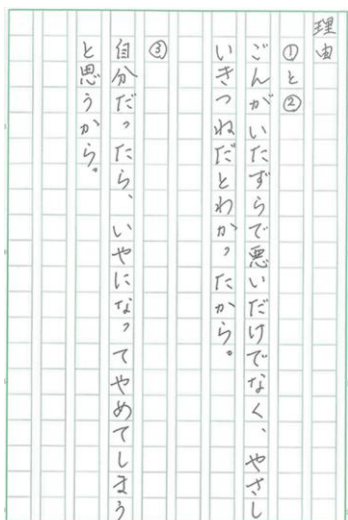 理由
①と②
ごんがいたずらで悪いだけでなく、やさし
いきつねだとわかったから。
③
自分だったら、いやになってやめてしまう
と思うから。